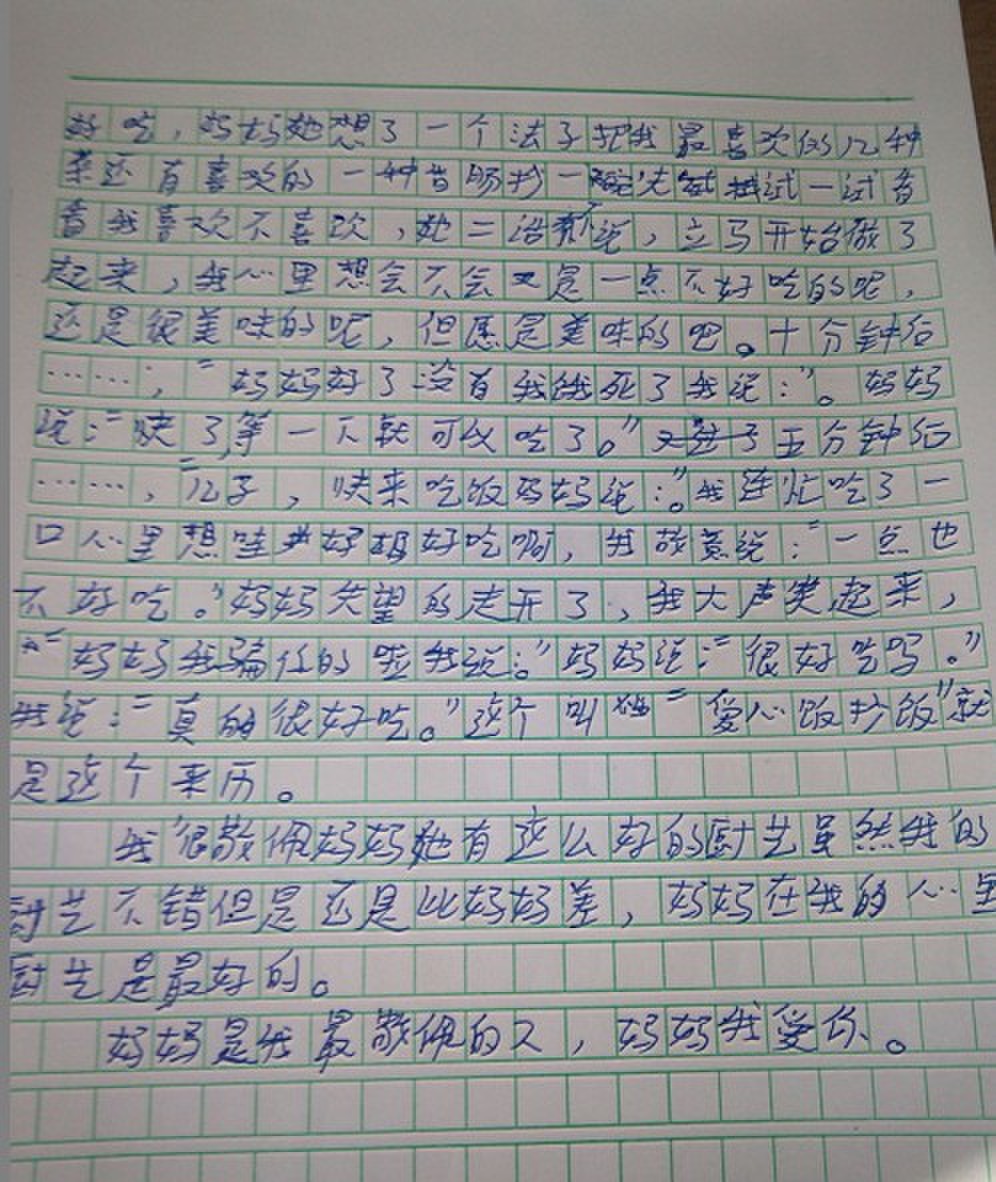 好吃，妈妈她想了一个法子把我最喜欢的几种
菜还有喜欢的一种香肠抄一试一试看
看我喜欢不喜欢，她二话不说，立马开始做了
起来，我心里想会不会又是一点不好吃的呢，
还是很美味的呢，但愿是美味的吧。十分钟后
……，“妈妈好了没有我饿死了我说：”。妈妈
说：“快了等一下就可以吃了。”五分钟后
……，“儿子，快来吃饭妈妈说：”。我连忙吃了一
口心里想哇好好吃啊，我故意说：“一点也
不好吃。”妈妈失望的走开了，我大声笑起来，
“妈妈我骗你的啦我说：”妈妈说：“很好吃吗。”
我说：“真的很好吃。”这个叫“爱心饭抄饭”就
是这个来历。
我很敬佩妈妈她有这么好的厨艺虽然我的
厨艺不错但是还是比妈妈差，妈妈在我的心里
厨艺是最好的。
妈妈是我最敬佩的人，妈妈我爱你。